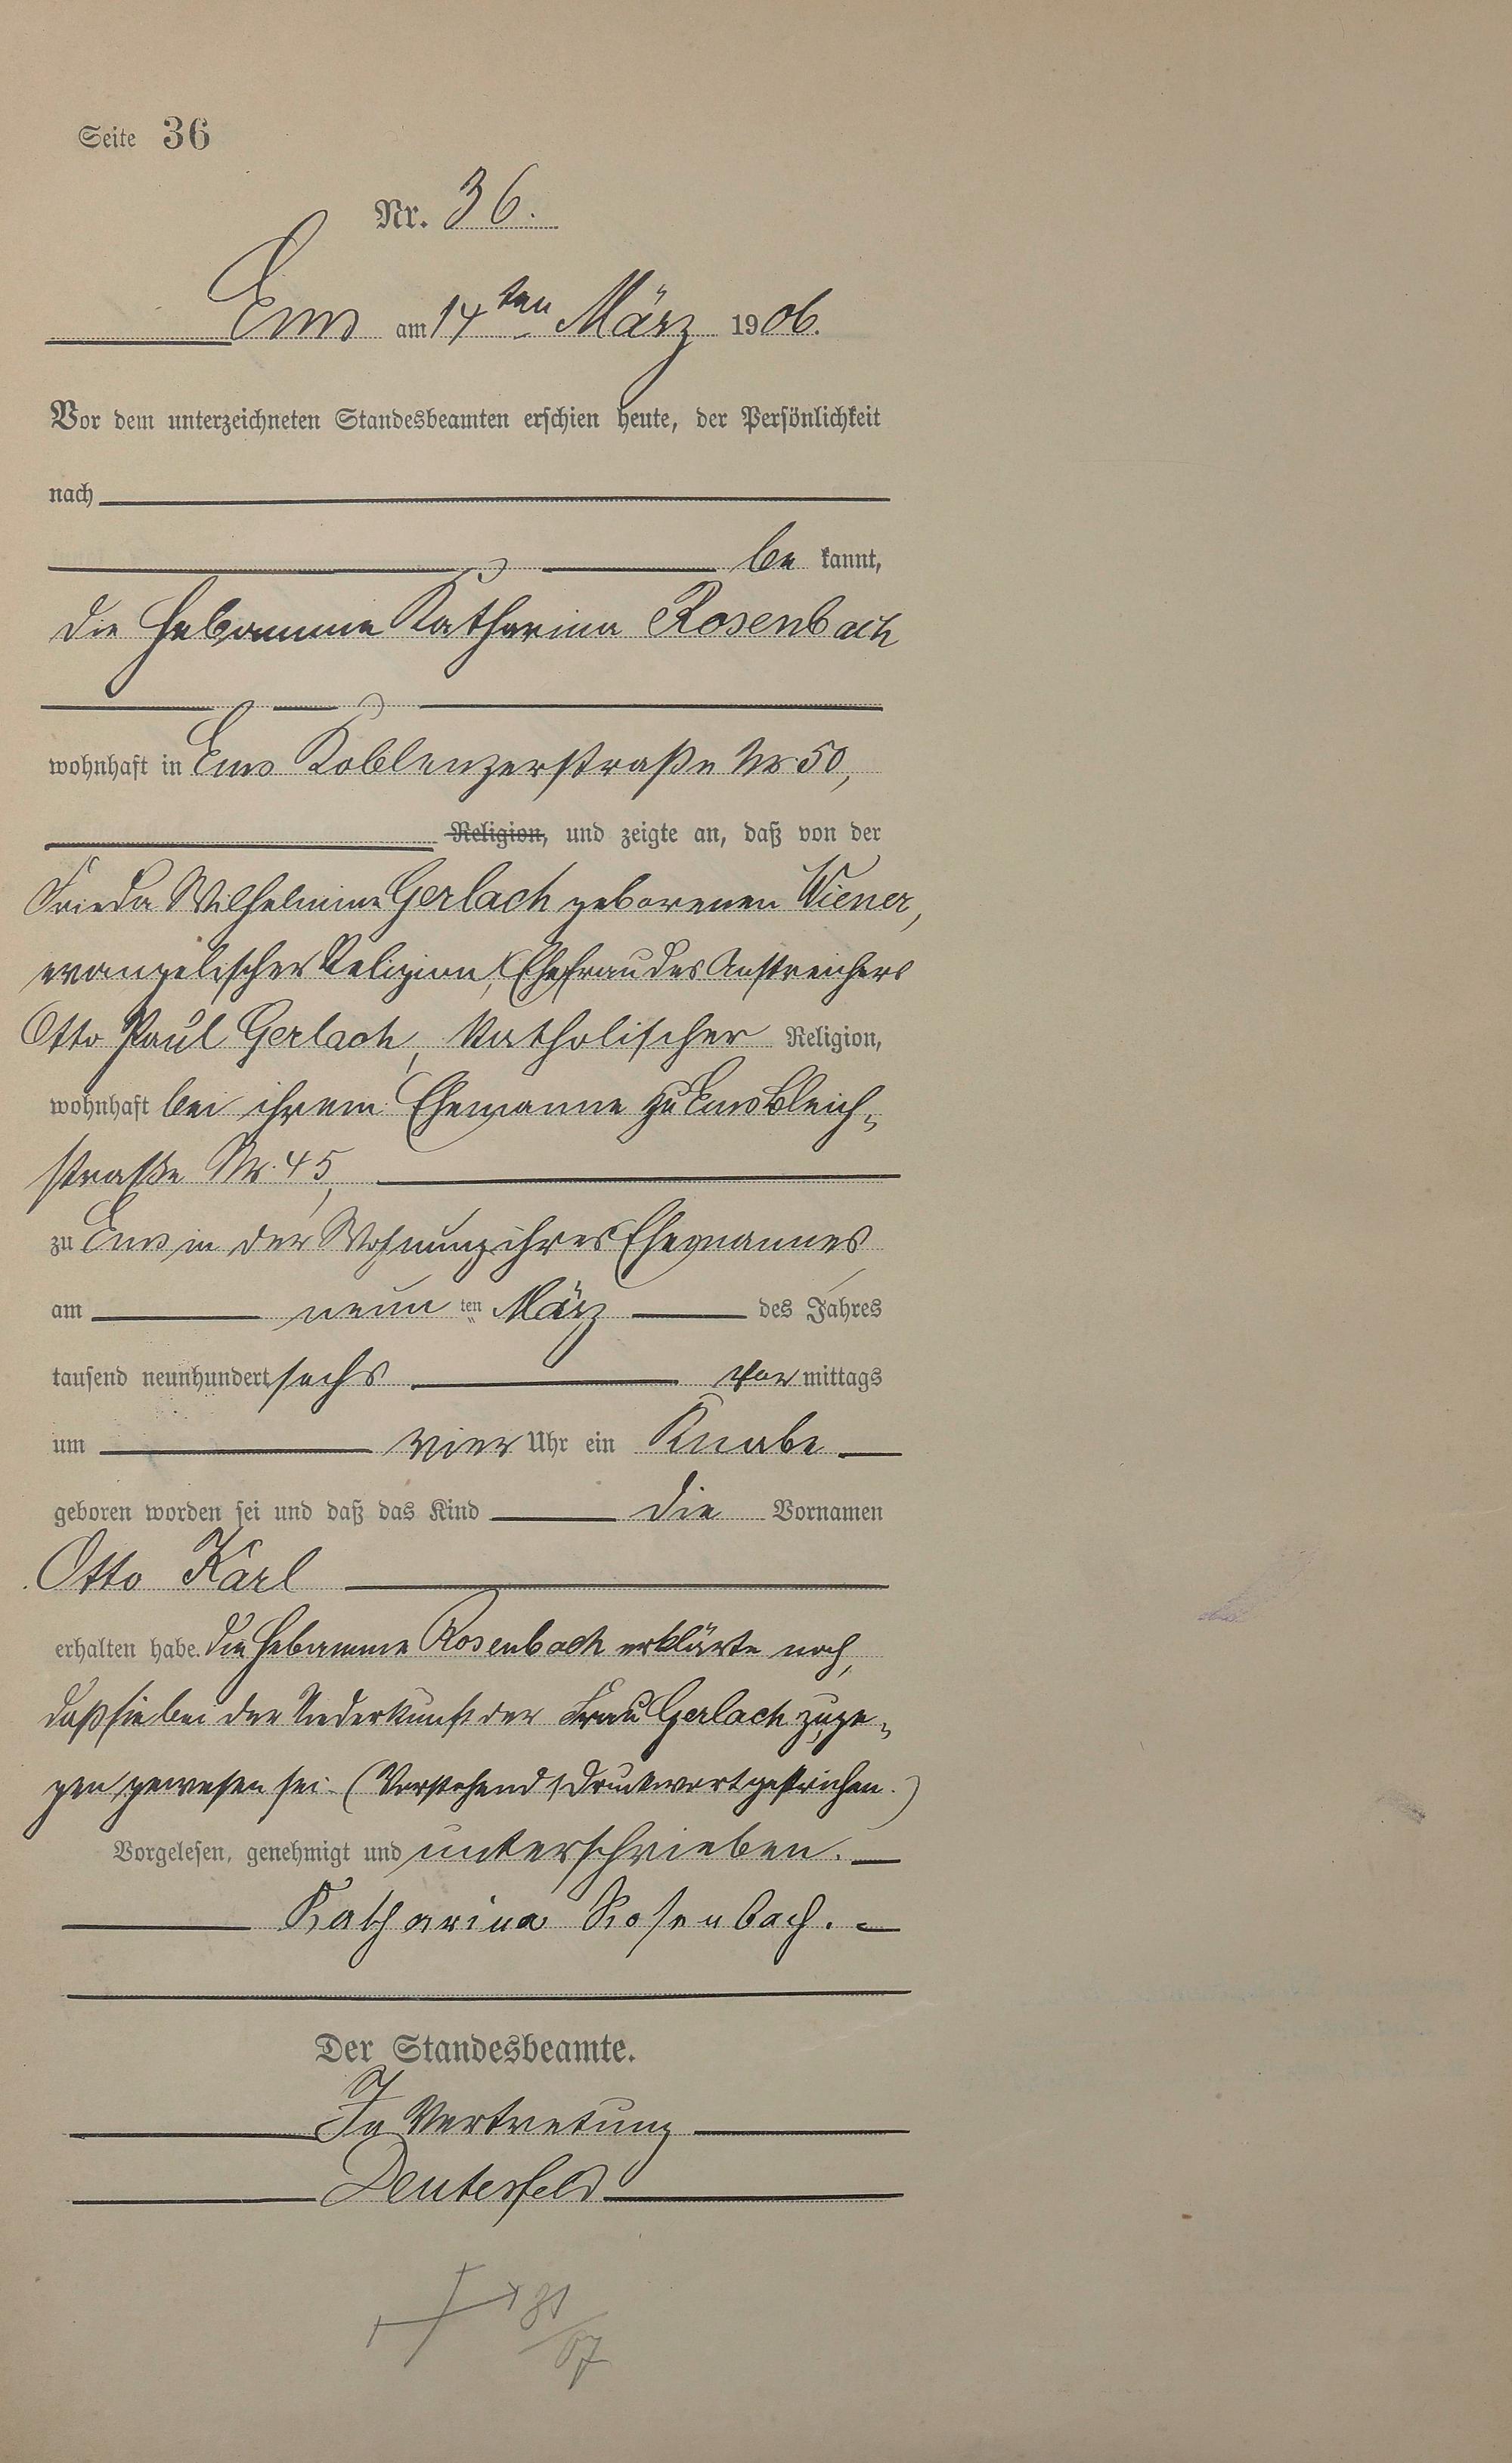 Seite 36
Nr. 36.
Ems am 14ten März 1906.
Vor dem unterzeichneten Standesbeamten erschien heute, der Persönlichkeit
nach
be kannt,
die Hebamme Katharina Rosenbach
wohnhaft in Ems Koblenzerstraße Nr. 50,
Religion, und zeigte an, daß von der
Frieda Wilhelmine Gerlach geborenen Wiener,
evangelischer Religion, Ehefrau des Anstreichers
Otto Paul Gerlach, katholischer Religion,
wohnhaft bei ihrem Ehemanne zu Ems Bleich-
straße Nr. 45,
zu Ems in der Wohnung ihres Ehemannes
am neun ten März des Jahres
tausend neunhundert sechs Vor mittags
um vier Uhr ein Knabe
geboren worden sei und daß das Kind die Vornamen
Otto Karl
erhalten habe. Die Hebamme Rosenbach erklärte noch,
daß sie bei der Niederkunft der Frau Gerlach zuge-
gen gewesen sei. (Vorstehend 1 Druckwort gestrichen.)
Vorgelesen, genehmigt und unterschrieben.
Katharina Rosenbach.
Der Standesbeamte.
In Vertretung
Deutesfeld
31
07